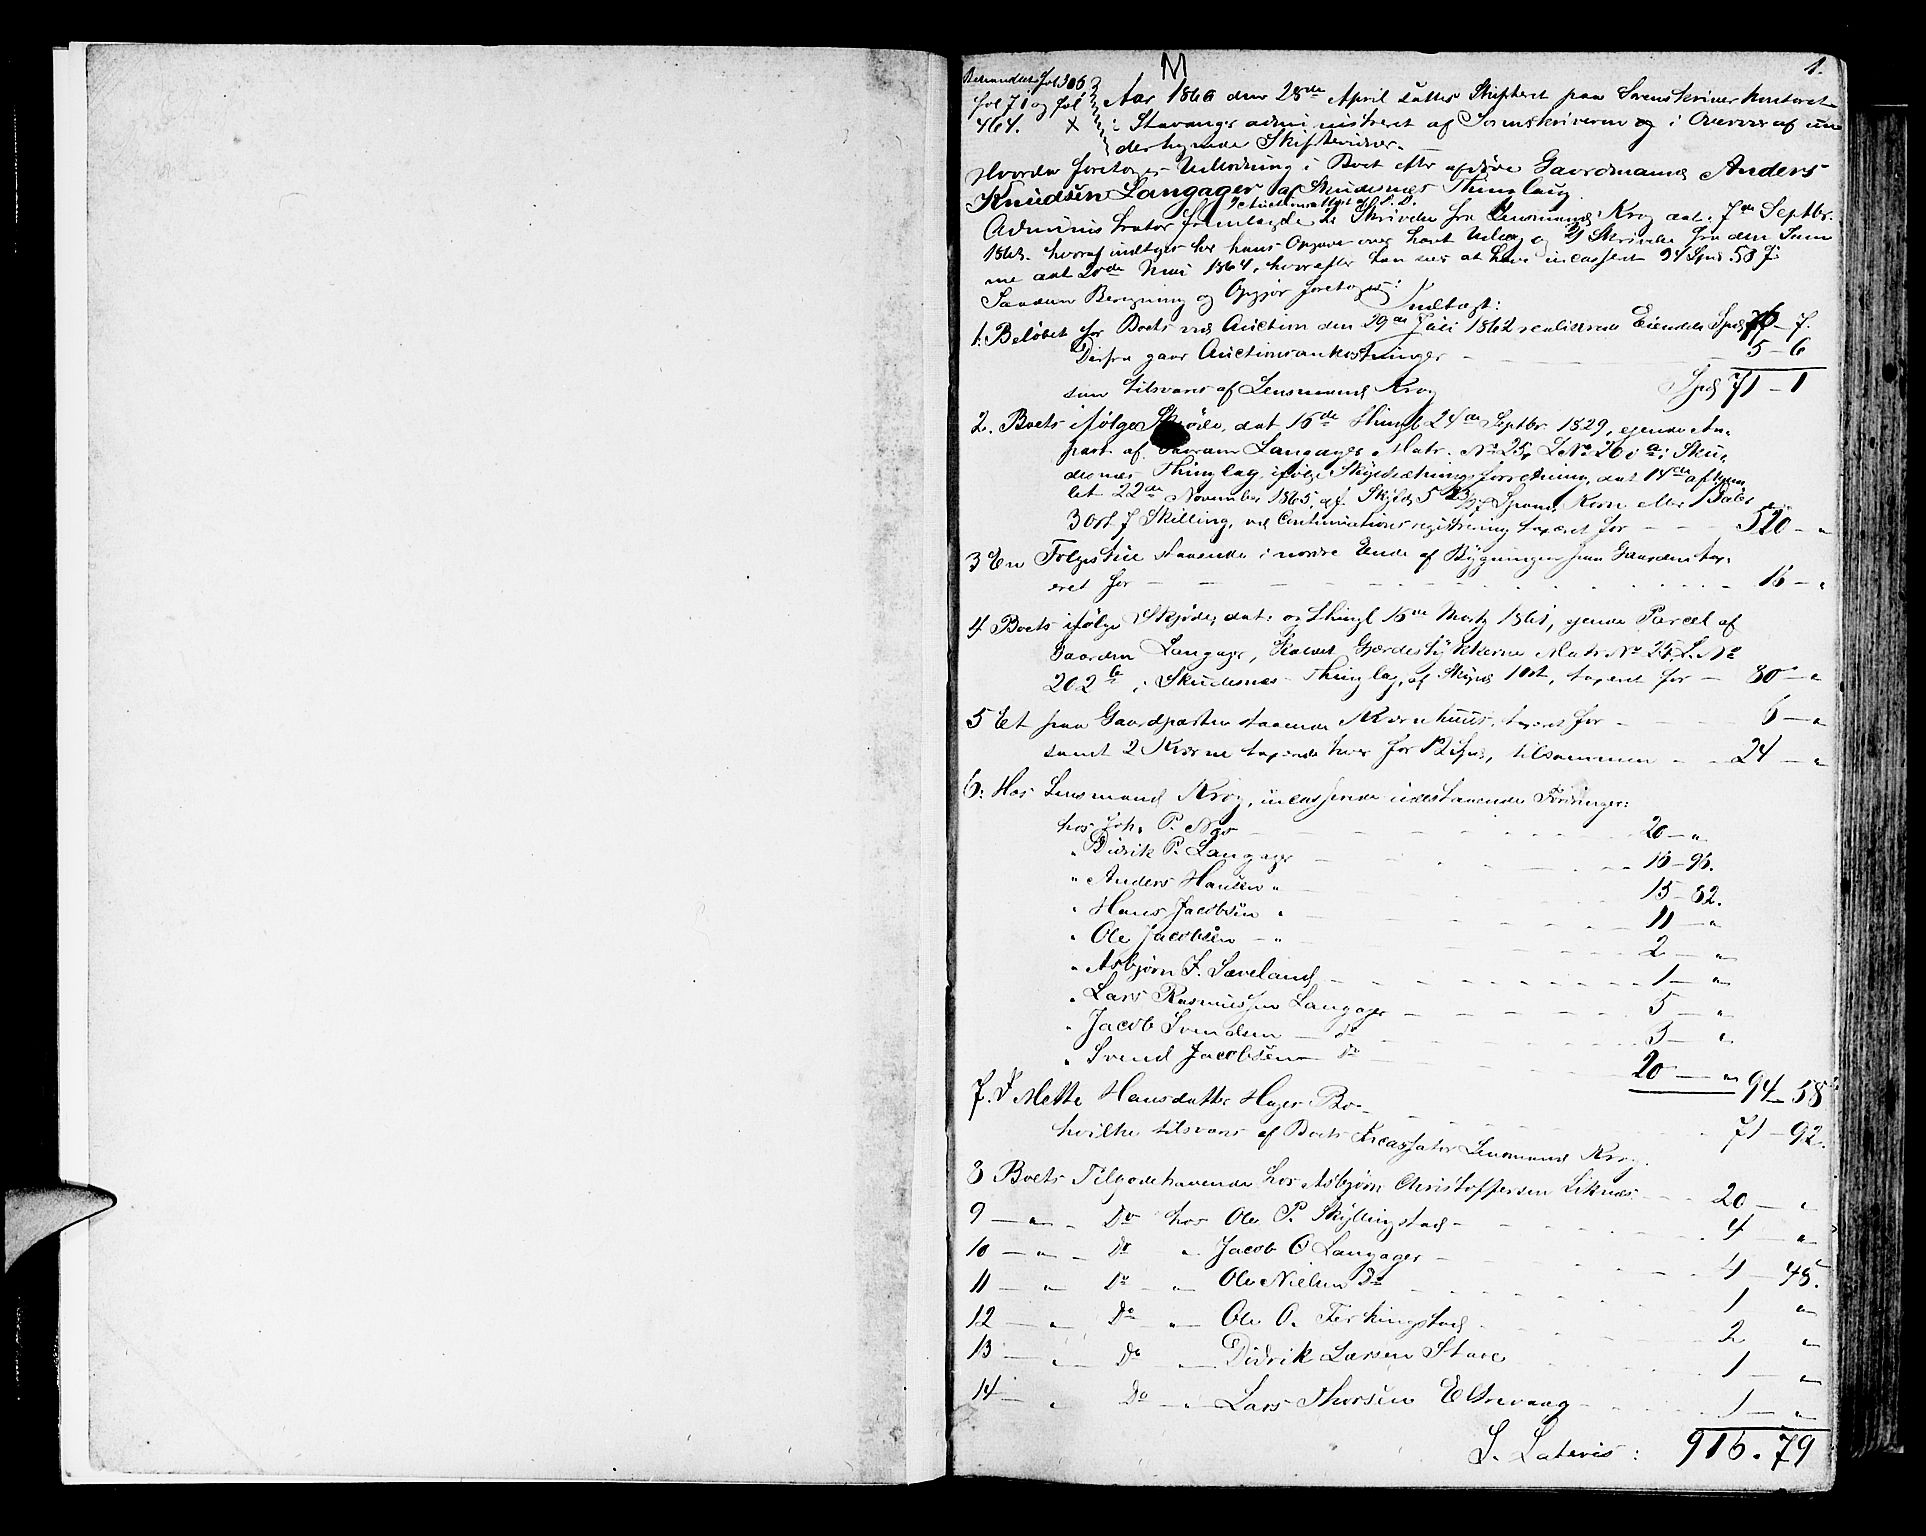 M
1.
Behandlet fol 306
fol 71 og fol
464. X
Aar 1866 den 28de April sattes Skifteret paa Sorenskriver Kontoret
i Stavanger administreret af Sorenskriveren og i Overvær af un
derskrevne Skiftevidner.
Hvorda foretoges Udlodning i Boet efter afdøde Gaardmand Anders
Knudsen Langager af Skudesnæs Thinglaug
Administrator fremlagde Skrivelse fra Lensmand Krog dat. 7de Septbr.
1863. hvoraf indtages her hans Opgave over havt Udlæg og 2) Skrivelse fra den Sam
me dat 20de Mai 1864, hvorefter han sees at have incasseret 94 Spd 58 ß
Saadan Beregning og Opgjør foretoges:
Indtægt:
1. Beløbet for Boets ved Auction den 29de Juli 1862 realiserede Eiendele Spd 76 – 7.
Derfra gaar Auctionsomkostninger 5 – 6
som tilsvares af Lensmand Krog Spd 71 – 1
2. Boets ifølge Skjøde, dat 16de Thingl 24de Septbr 1829, eiende An-
part af Gaarden Langager Matr. No 25, L No 201 a i Sku-
desnæs Thinglag, ifølge Skyldsætningsforretning, dat 14de afhjem
let 22de November 1865, af Skyld 5 Spand Korn eller 1 Daler
3 Ort 7 Skilling, ved Continuationsregistrering taxeret for – – – 520 – "
3 En Følgestue staaende i nordre Ende af Bygningen paa Gaarden tax-
eret for – – – 16 – "
4 Boets ifølge Skjøde, dat: og thingl 16de Marts 1861, eiende Parcel af
Gaarden Langager, kaldet Gjærdestykkerne Matr No 25, L. No
202 b i Skudesnæs Thinglag, af Skyld 1 Ort, taxeret for – 80 – "
5 Et paa Gaardparten staaende Kværnhuus, taxeret for – – – 6 – "
samt 2 Kværne taxerede hver for 12 Spd, tilsammen – – 24 – "
6. Hos Lensmand Krog, incasserede udestaaende Fordringer:
hos Joh. P. Næs – – – 20 – "
" Didrik P. Langager – – – 16 – 96.
" Anders Hansen " – – – 15 – 82.
" Hans Jacobsen " – – – 11 – "
" Ole Jacobsen – " – – – 2 – "
" Asbjørn J. Sæveland – – – 1 – "
" Lars Rasmussen Langager – – – 5 – "
" Jacob Svendsen – do – – – 3 – "
" Svend Jacobsen – do – – – 20 – " 94 – 58
7. I Mette Hansdatter Bo – – – 71 – 92.
hvilke tilsvares af Boets Incassator Lensmand Krog.
8 Boets Tilgodehavende hos Asbjørn Christoffersen Liknæs – – – 20 – "
9 – " – Do hos Ole P. Skyllingstad – – – 4 – "
10 – " – Do " Jacob O Langager – – – 4 – 48.
11 – " Do – " Ole Nielsen Do – – – 1 "
12 – " Do – " Ole O. Ferkingstad – – – 2 "
13 – " – Do – " – Didrik Larsen Stave – – – 1 – "
14 – " Do – " – Lars Thorsen Eltrevaag – – – 1 – "
S. Lateris: 916. 79